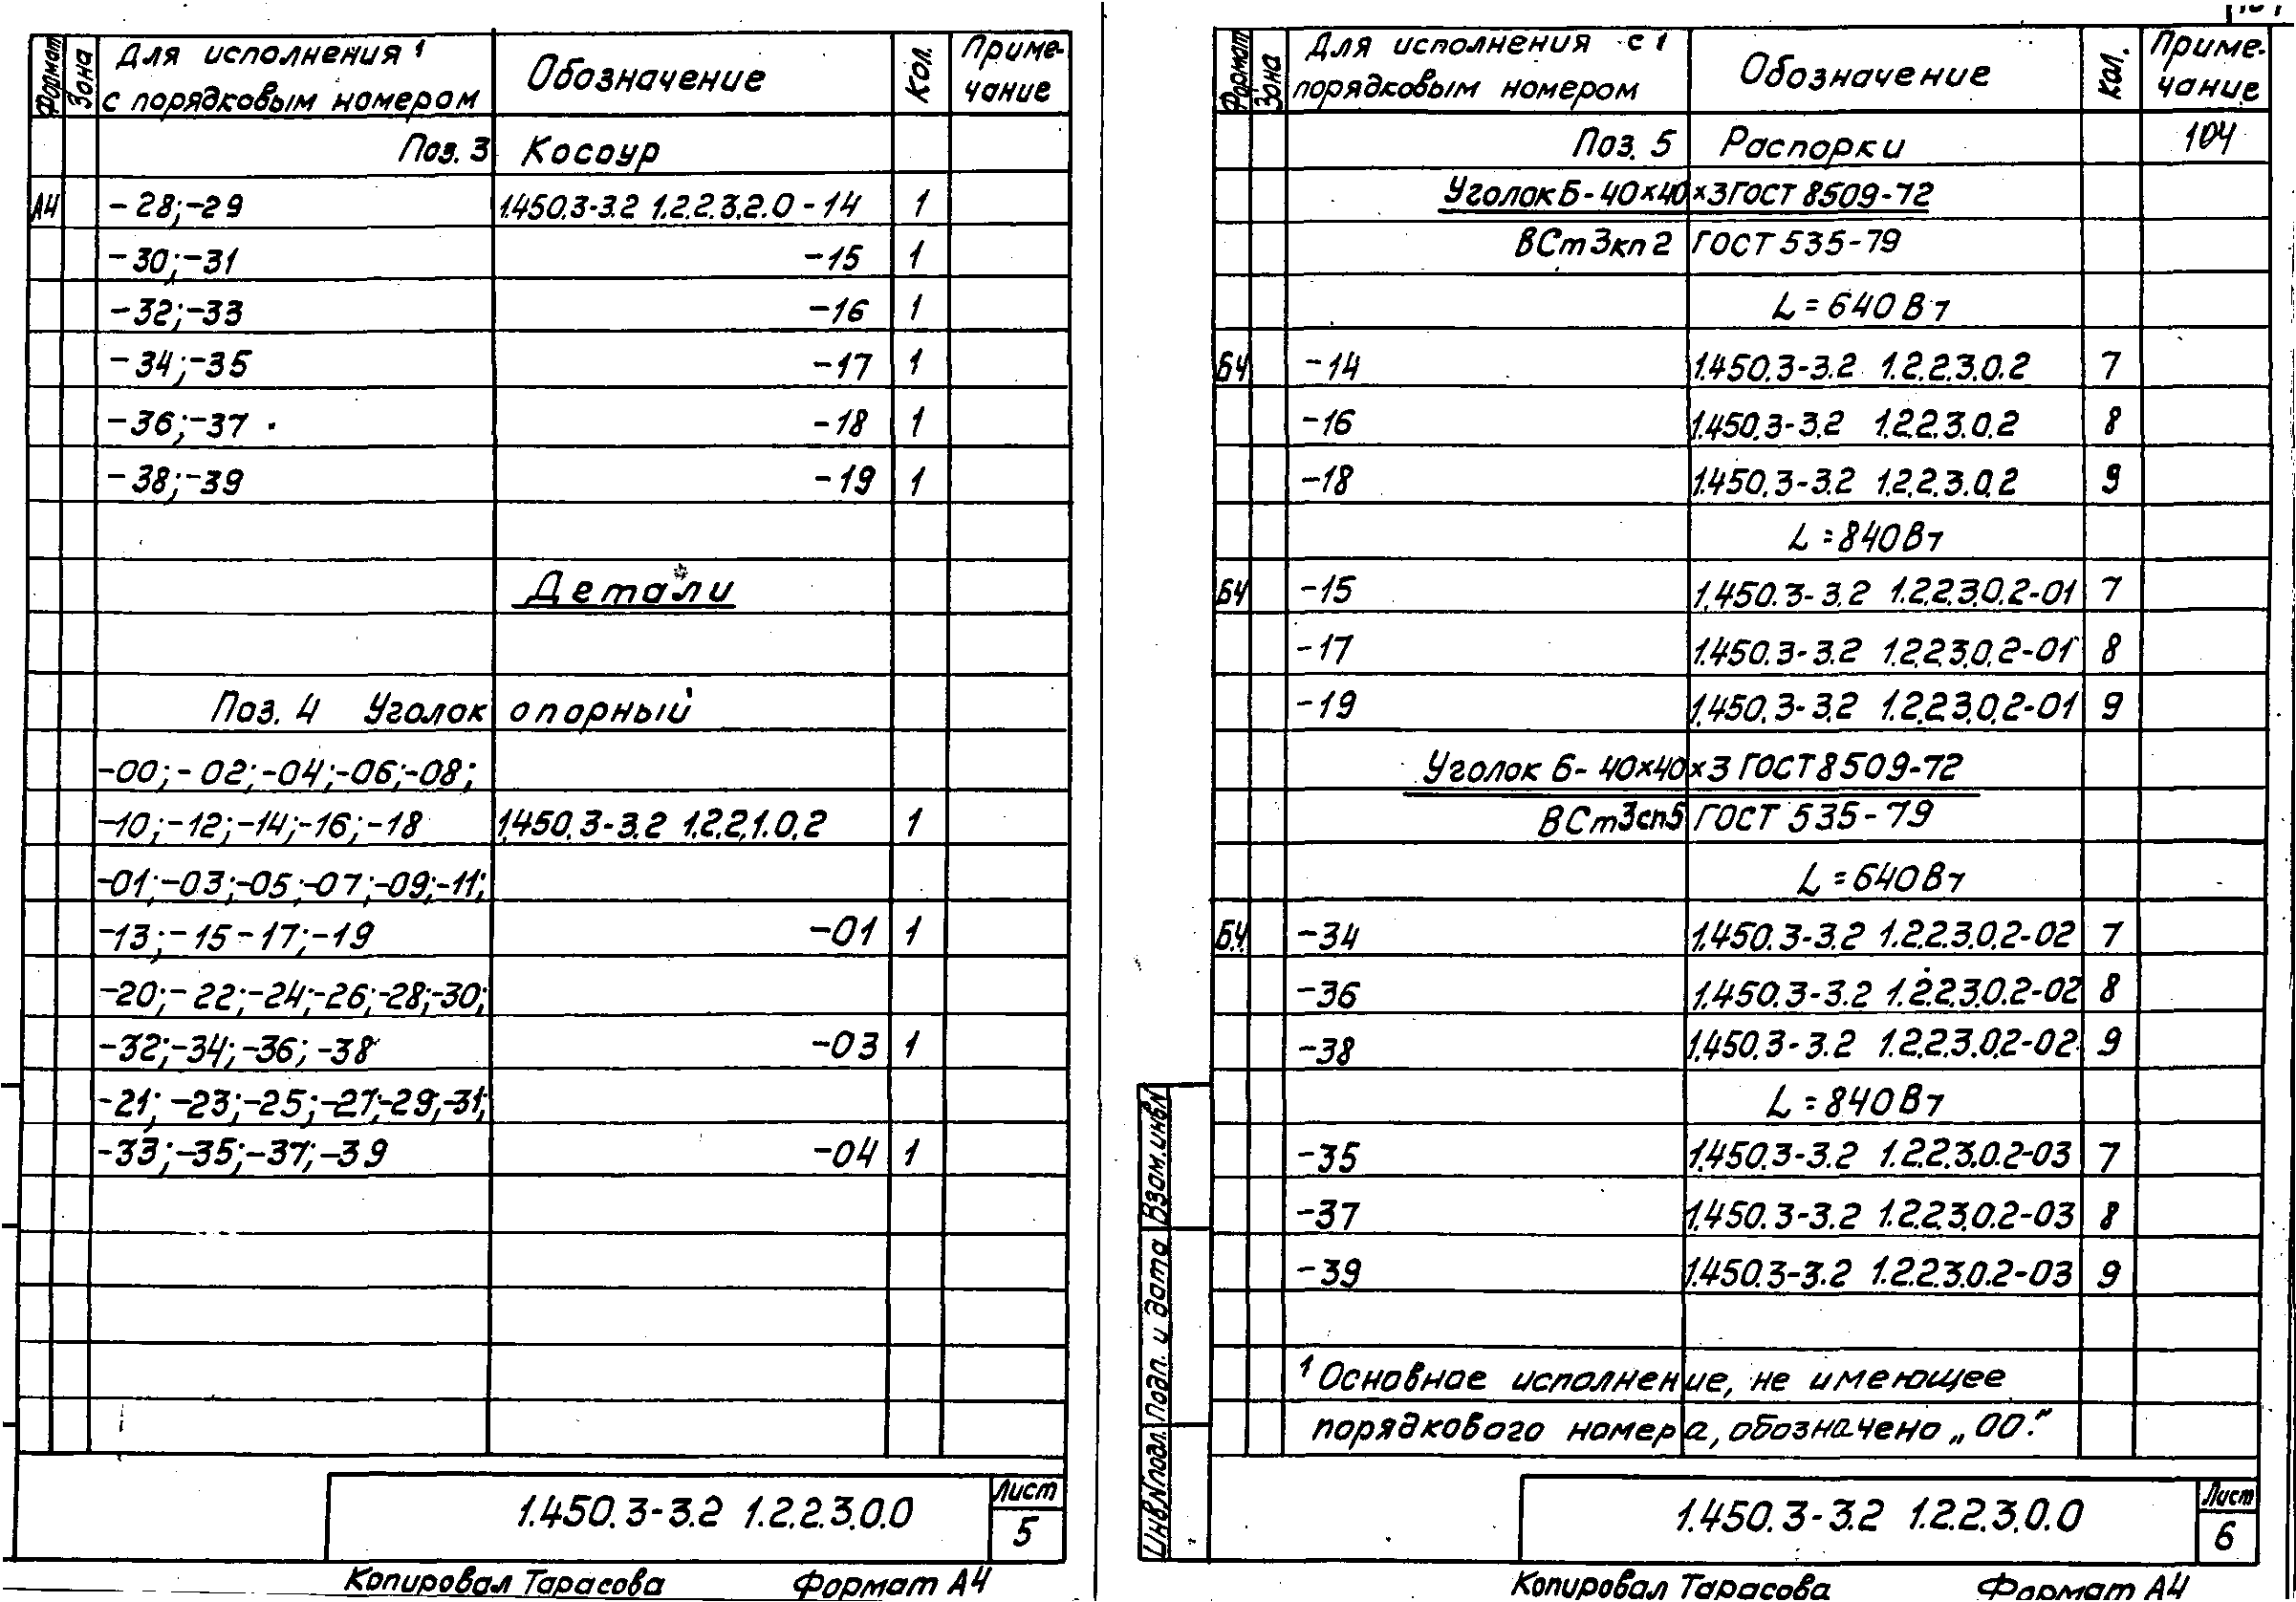 Формат
Зона
Для исполнения ¹
с порядковым номером
Обозначение
Кол.
Приме-
чание
Поз. 3 Косоур
А4 -28;-29 1.450.3-3.2 1.2.2.3.2.0-14 1
-30;-31 -15 1
-32;-33 -16 1
-34;-35 -17 1
-36;-37 -18 1
-38;-39 -19 1
Детали
Поз. 4 Уголок опорный
-00;-02;-04;-06;-08;
-10;-12;-14;-16;-18 1.450.3-3.2 1.2.2.1.0.2 1
-01;-03;-05;-07;-09;-11;
-13;-15-17;-19 -01 1
-20;-22;-24;-26;-28;-30;
-32;-34;-36;-38 -03 1
-21;-23;-25;-27;-29;-31;
-33;-35;-37;-39 -04 1
1.450.3-3.2 1.2.2.3.0.0
Лист
5
Копировал Тарасова Формат А4
Формат
Зона
Для исполнения с ¹
порядковым номером
Обозначение
Кол.
Приме-
чание
Поз. 5 Распорки 104
Уголок Б-40×40×3 ГОСТ 8509-72
ВСт3кп2 ГОСТ 535-79
L=640Вт
БЧ -14 1.450.3-3.2 1.2.2.3.0.2 7
-16 1.450.3-3.2 1.2.2.3.0.2 8
-18 1.450.3-3.2 1.2.2.3.0.2 9
L=840Вт
БЧ -15 1.450.3-3.2 1.2.2.3.0.2-01 7
-17 1.450.3-3.2 1.2.2.3.0.2-01 8
-19 1.450.3-3.2 1.2.2.3.0.2-01 9
Уголок Б-40×40×3 ГОСТ 8509-72
ВСт3сп5 ГОСТ 535-79
L=640Вт
БЧ -34 1.450.3-3.2 1.2.2.3.0.2-02 7
-36 1.450.3-3.2 1.2.2.3.0.2-02 8
-38 1.450.3-3.2 1.2.2.3.0.2-02 9
L=840Вт
-35 1.450.3-3.2 1.2.2.3.0.2-03 7
-37 1.450.3-3.2 1.2.2.3.0.2-03 8
-39 1.450.3-3.2 1.2.2.3.0.2-03 9
¹ Основное исполнение, не имеющее
порядкового номера, обозначено „00".
Взам.инв.N
Подп. и дата
Инв.N подл.
1.450.3-3.2 1.2.2.3.0.0
Лист
6
Копировал Тарасова Формат А4